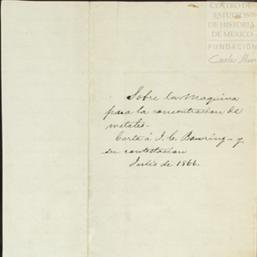 CENTRO DE
ESTUDIOS
DE HISTORIA
DE MEXICO
FUNDACIÓN
Carlos Slim
Sobre la Maquina
para la concentracion de
metales.
Carta á J. C. Bowring y
su contestacion
Julio de 1866.